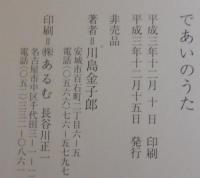 であいのうた
平成三年十二月 十 日 印刷
平成三年十二月十五日 発行
非売品
著者＝川島金子郎
安城市百石町二丁目六ー五
電話〇五六六ー七六ー五七九七
印刷＝㈱ あるむ 長谷川正一
名古屋市中区千代田三ー一ー
電話（〇五二）三三二ー〇八六一